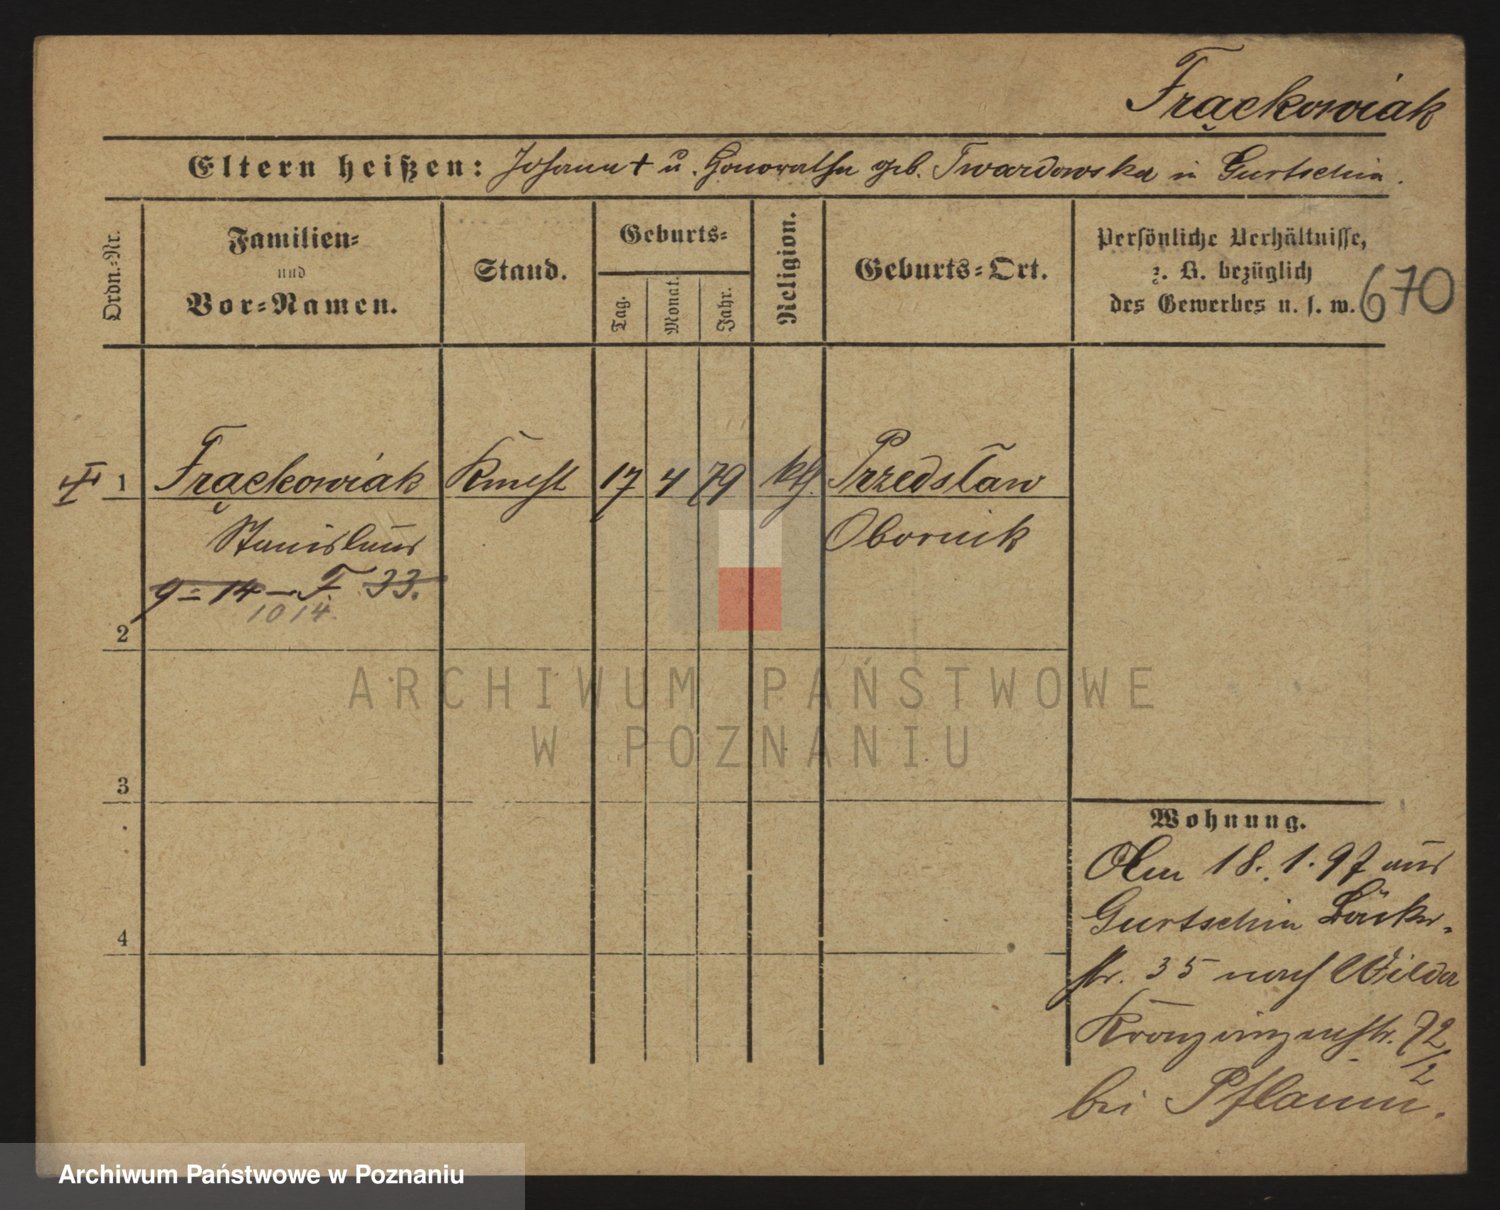 Frąckowiak
Eltern heißen: Johann + u. Honoratha geb. Twardowska in Gurtschin.
Ordn.-Nr.
Familien-
und
Vor-Namen.
Stand.
Geburts-
Tag.
Monat.
Jahr.
Religion.
Geburts-Ort.
Persönliche Verhältnisse,
z. B. bezüglich
des Gewerbes u. s. w.
670
1 Frąckowiak Knecht 17 4 79 kth. Przedsław
Stanislaus Obornik
9 = 14 — F. 33.
10 14.
2
3
4
ARCHIWUM PAŃSTWOWE
W POZNANIU
Wohnung.
18. 1. 97 aus
Gurtschin Bäcker-
str. 35 nach Wilda
Kronprinzenstr. 72/2
bei Pflaum.
Archiwum Państwowe w Poznaniu